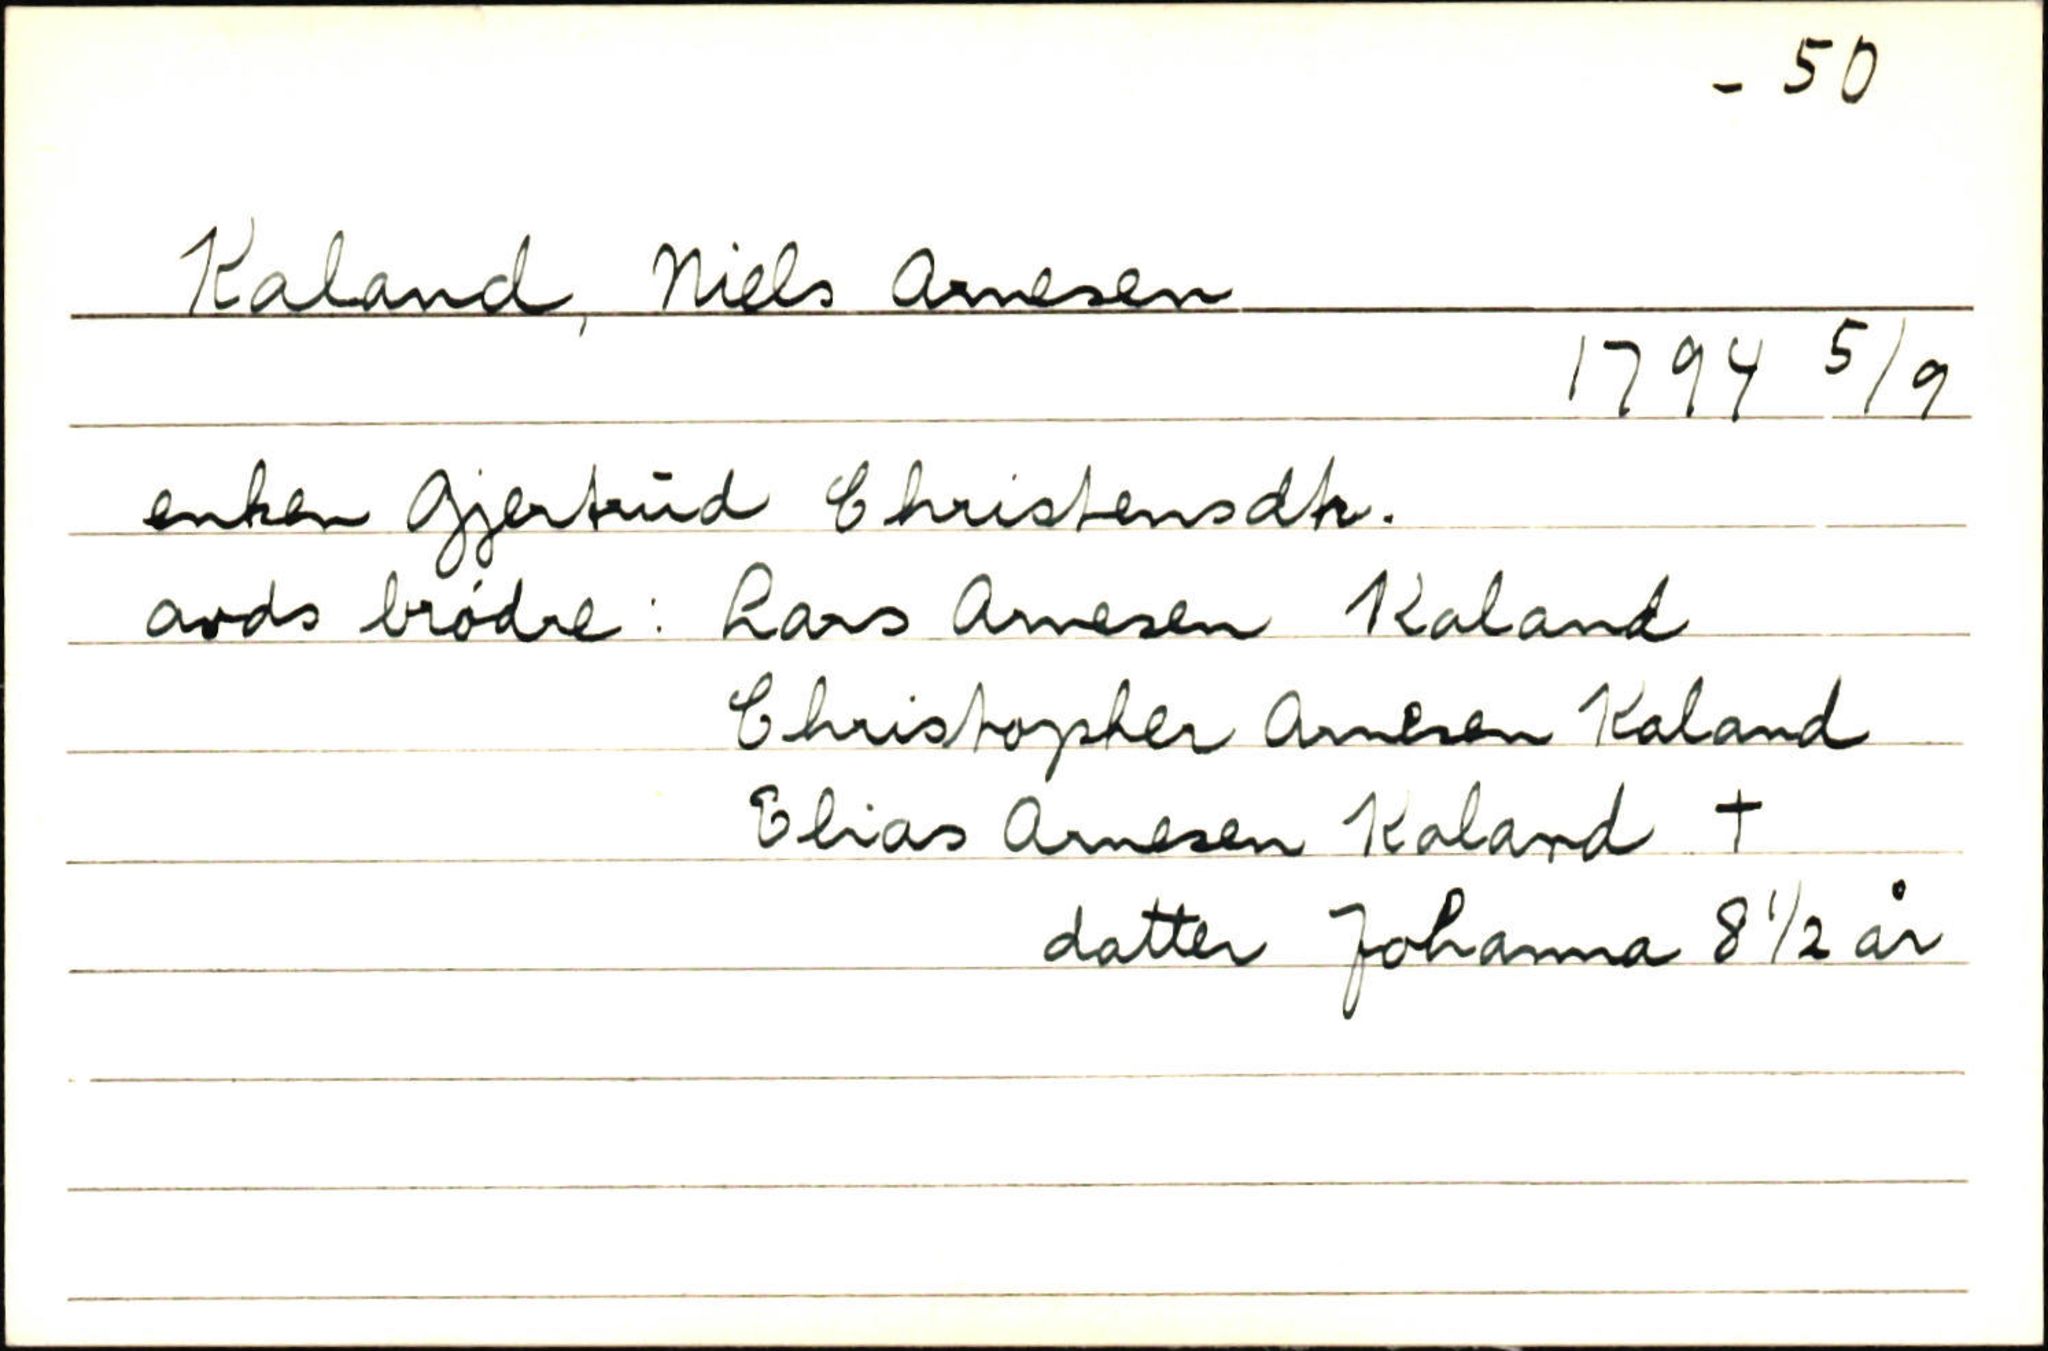 - 50
Kaland, Niels Arnesen
1794 5/9
enken Gjertrūd Christensdtr.
avds brødre: Lars Arnesen Kaland
Christopher Arnesen Kaland
Elias Arnesen Kaland †
datter Johanna 8 1/2 år